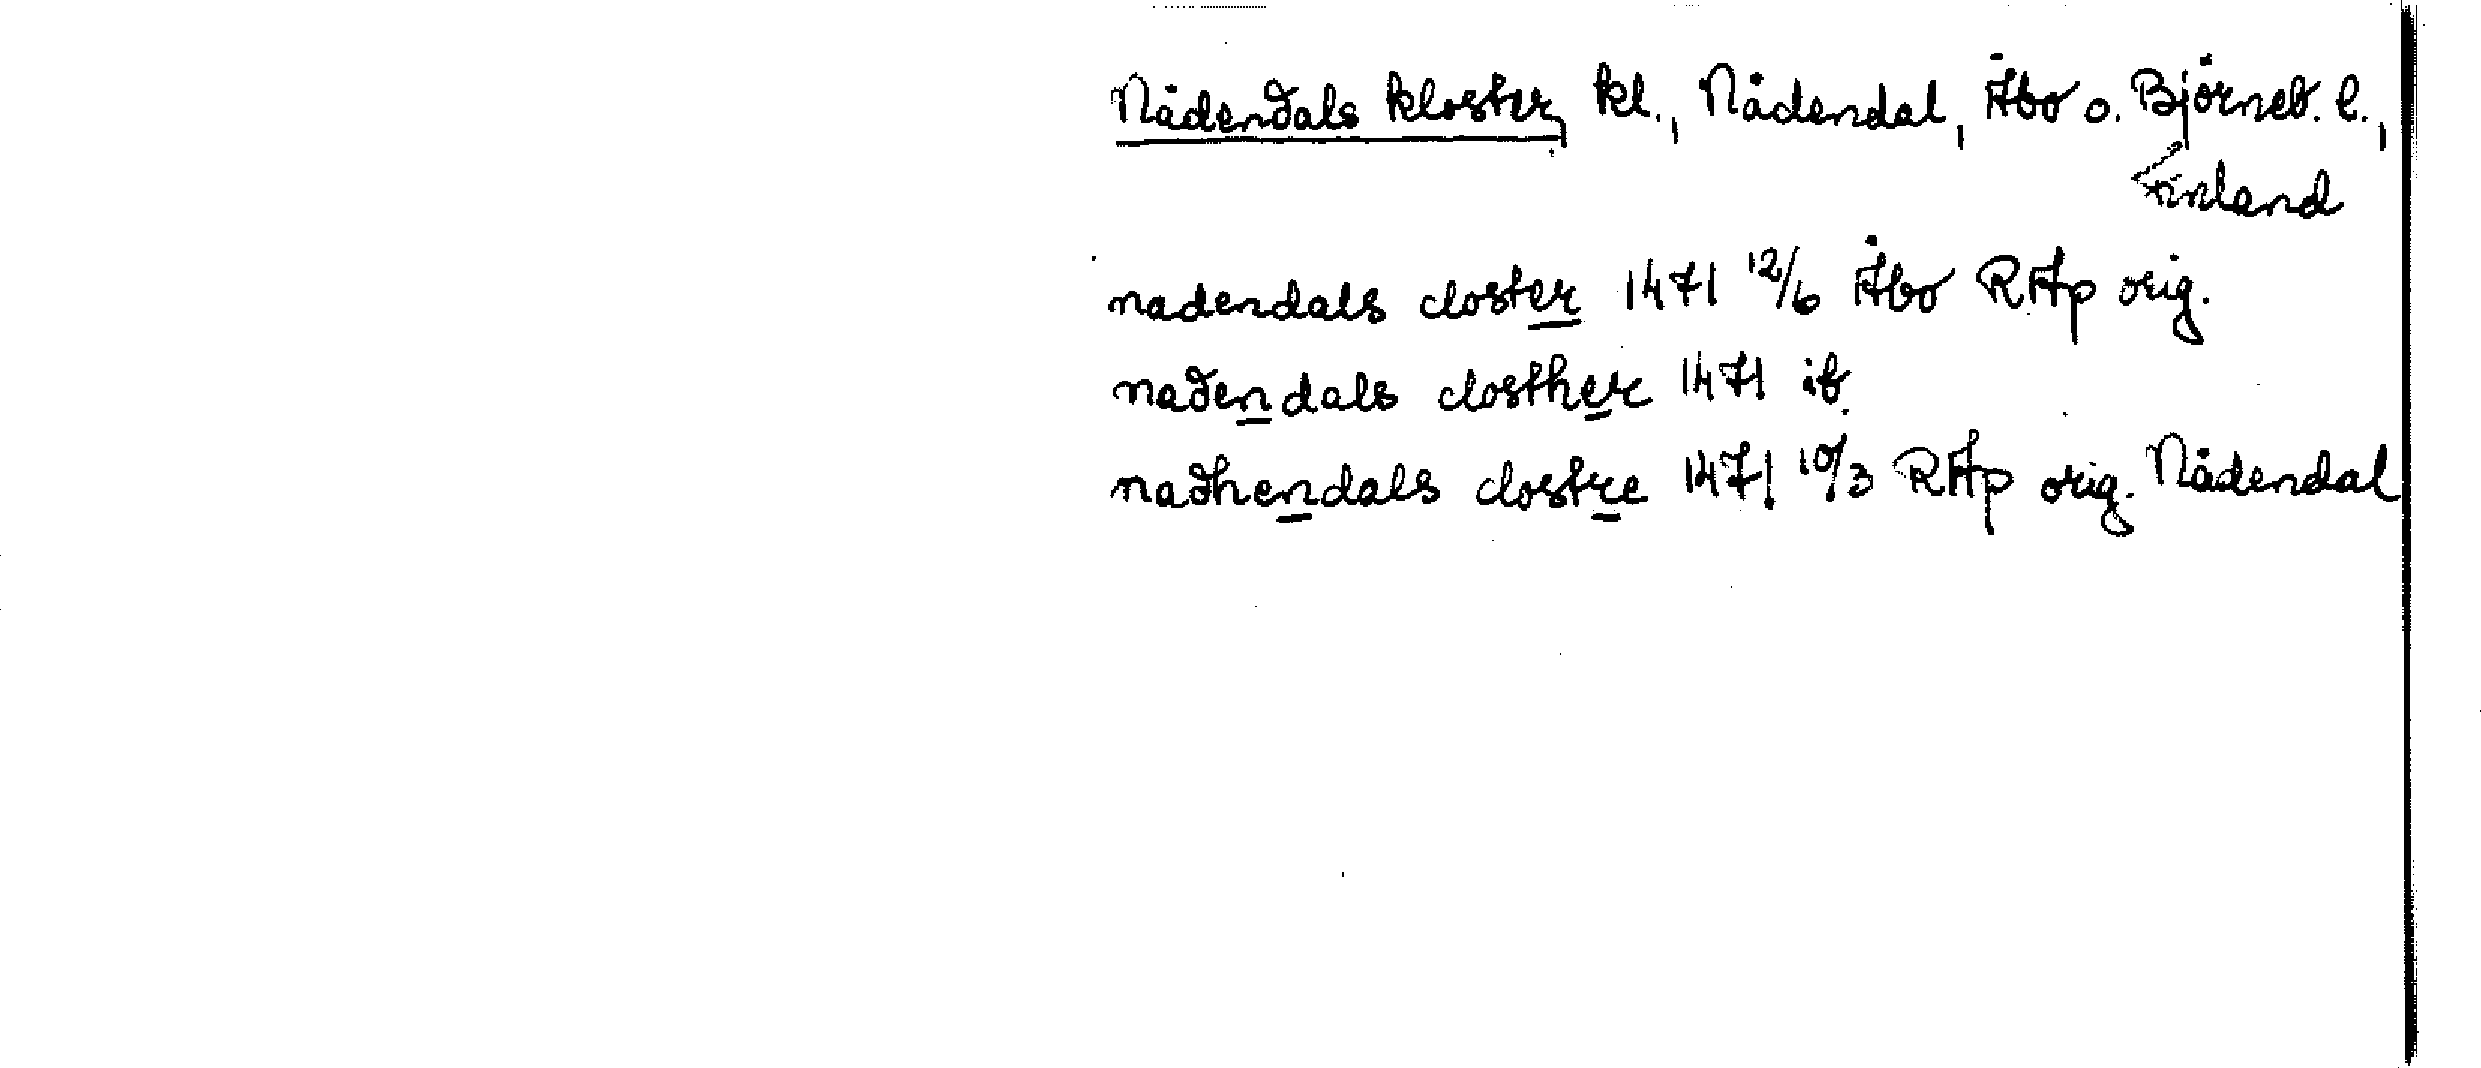 Nådendals kloster, kl., Nådendal, Åbo o. Björneb. l.,
Finland
nadendals closter 1471 12/6 Åbo RAp orig.
nadendals closther 1471 ib.
nadhendals clostre 1471 10/3 RAp orig. Nådendal